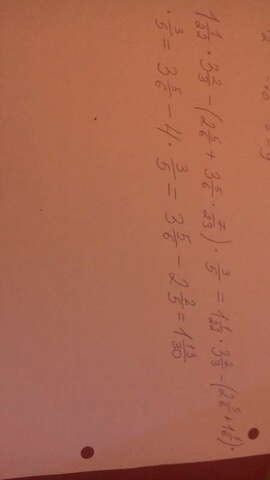 1 1/22 · 3 2/3 − (2 5/6 + 3 5/6 · 7/23) · 3/5 = 1 1/22 · 3 2/3 − (2 5/6 + 1 1/6) ·
· 3/5 = 3 5/6 − 4 · 3/5 = 3 5/6 − 2 2/5 = 1 13/30